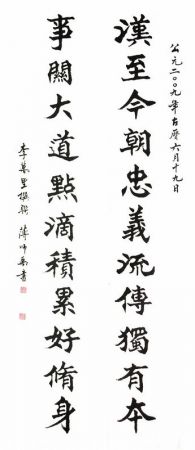 公元二〇〇九年古曆六月十九日
漢至今朝忠義流傳獨有本
事關大道點滴積累好脩身
李慕里撰聯 師書